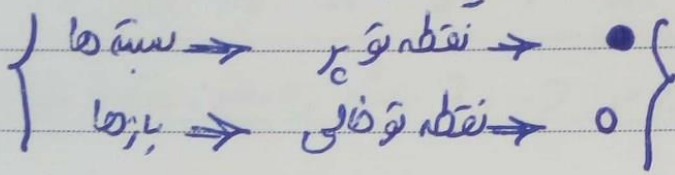 بسته ها → نقطه تو پر → ●
بازها → نقطه تو خالی → ○